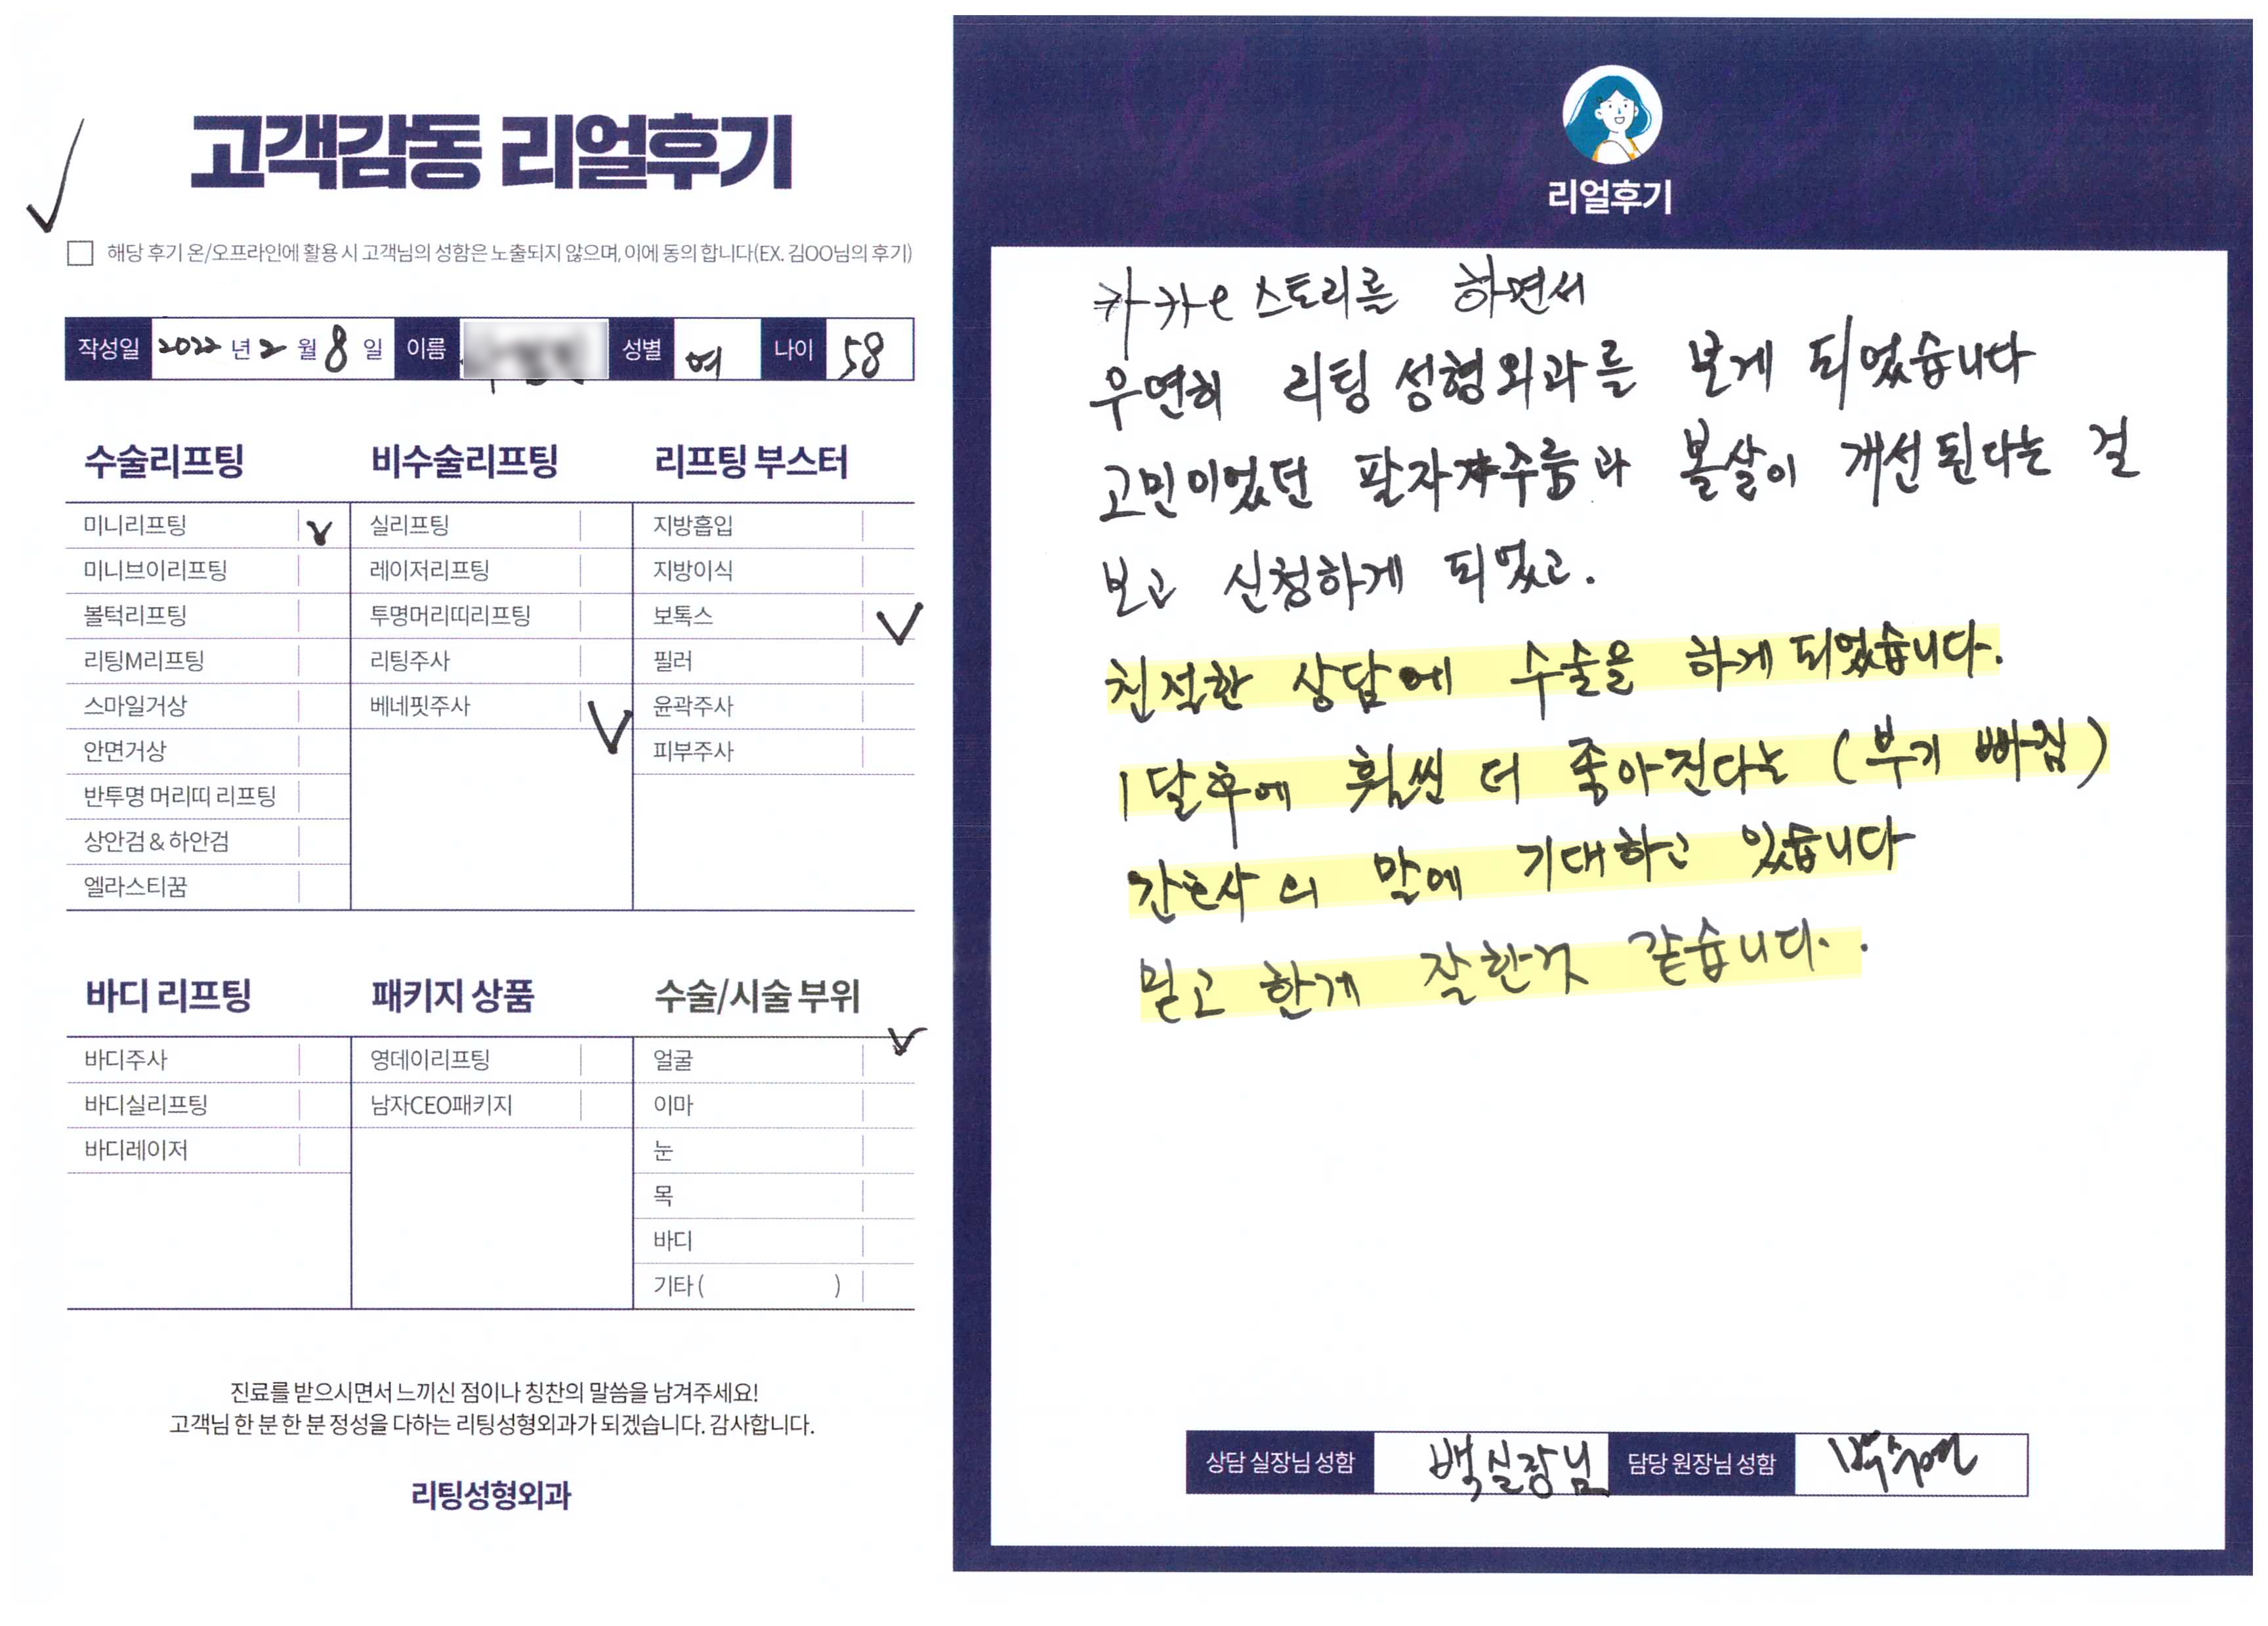 고객감동 리얼후기
해당 후기 온/오프라인에 활용 시 고객님의 성함은 노출되지 않으며, 이에 동의 합니다(EX. 김OO님의 후기)
작성일 2022 년 2 월 8 일 이름 성별 여 나이 58
수술리프팅
미니리프팅
미니브이리프팅
볼턱리프팅
리팅M리프팅
스마일거상
안면거상
반투명 머리띠 리프팅
상안검 & 하안검
엘라스티꿈
비수술리프팅
실리프팅
레이저리프팅
투명머리띠리프팅
리팅주사
베네핏주사
리프팅 부스터
지방흡입
지방이식
보톡스
필러
윤곽주사
피부주사
바디 리프팅
바디주사
바디실리프팅
바디레이저
패키지 상품
영데이리프팅
남자CEO패키지
수술/시술 부위
얼굴
이마
눈
목
바디
기타 ( )
진료를 받으시면서 느끼신 점이나 칭찬의 말씀을 남겨주세요!
고객님 한 분 한 분 정성을 다하는 리팅성형외과가 되겠습니다. 감사합니다.
리팅성형외과
리얼후기
카카오스토리를 하면서
우연히 리팅성형외과를 보게 되었습니다
고민이었던 팔자주름과 볼살이 개선된다는 걸
보고 신청하게 되었고.
친절한 상담에 수술을 하게 되었습니다.
1달후에 훨씬 더 좋아진다는 (부기 빠짐)
간호사의 말에 기대하고 있습니다
믿고 한게 잘한것 같습니다..
상담 실장님 성함 백실장님 담당 원장님 성함